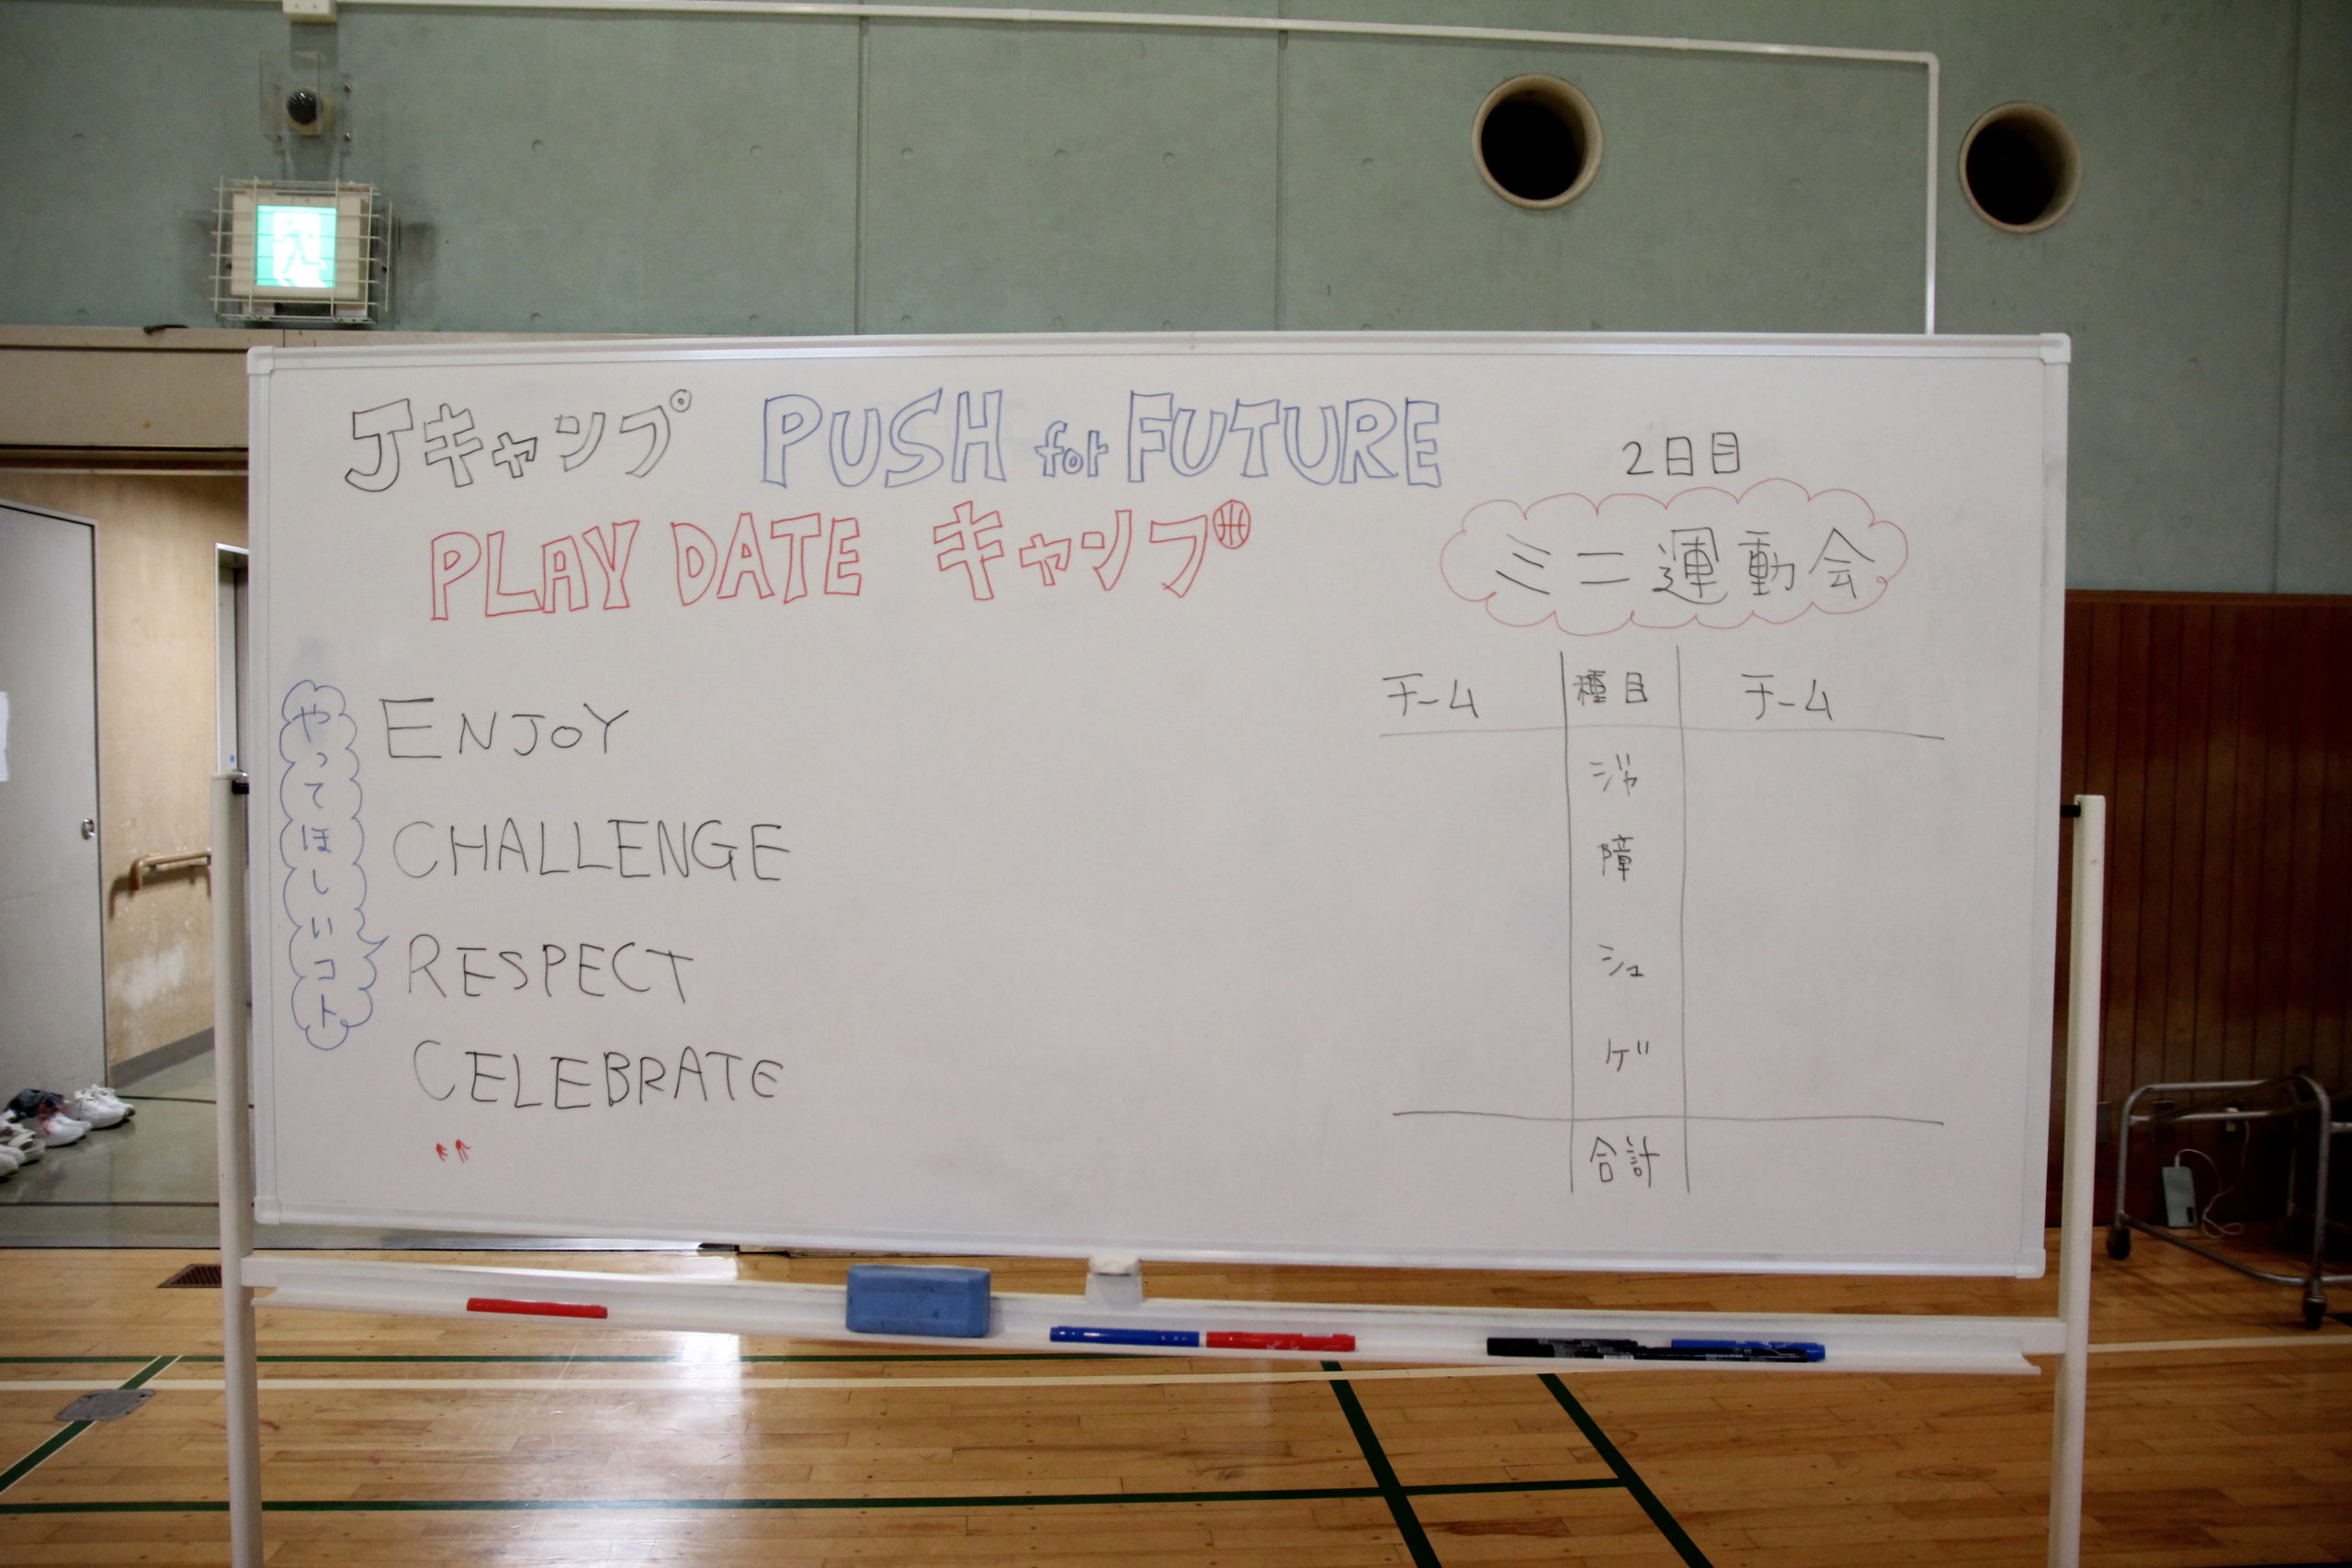 Jキャンプ PUSH for FUTURE
PLAY DATE キャンプ
やってほしいコト
ENJOY
CHALLENGE
RESPECT
CELEBRATE
2日目
ミニ運動会
チーム 種目 チーム
ジャ
障
シュ
ゲ
合計